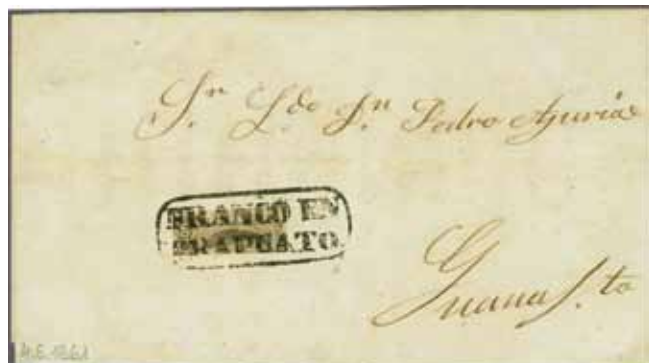 Sr. Ldo. Dn. Pedro Ajuria
FRANCO EN
IRAPUATO.
Guanajto